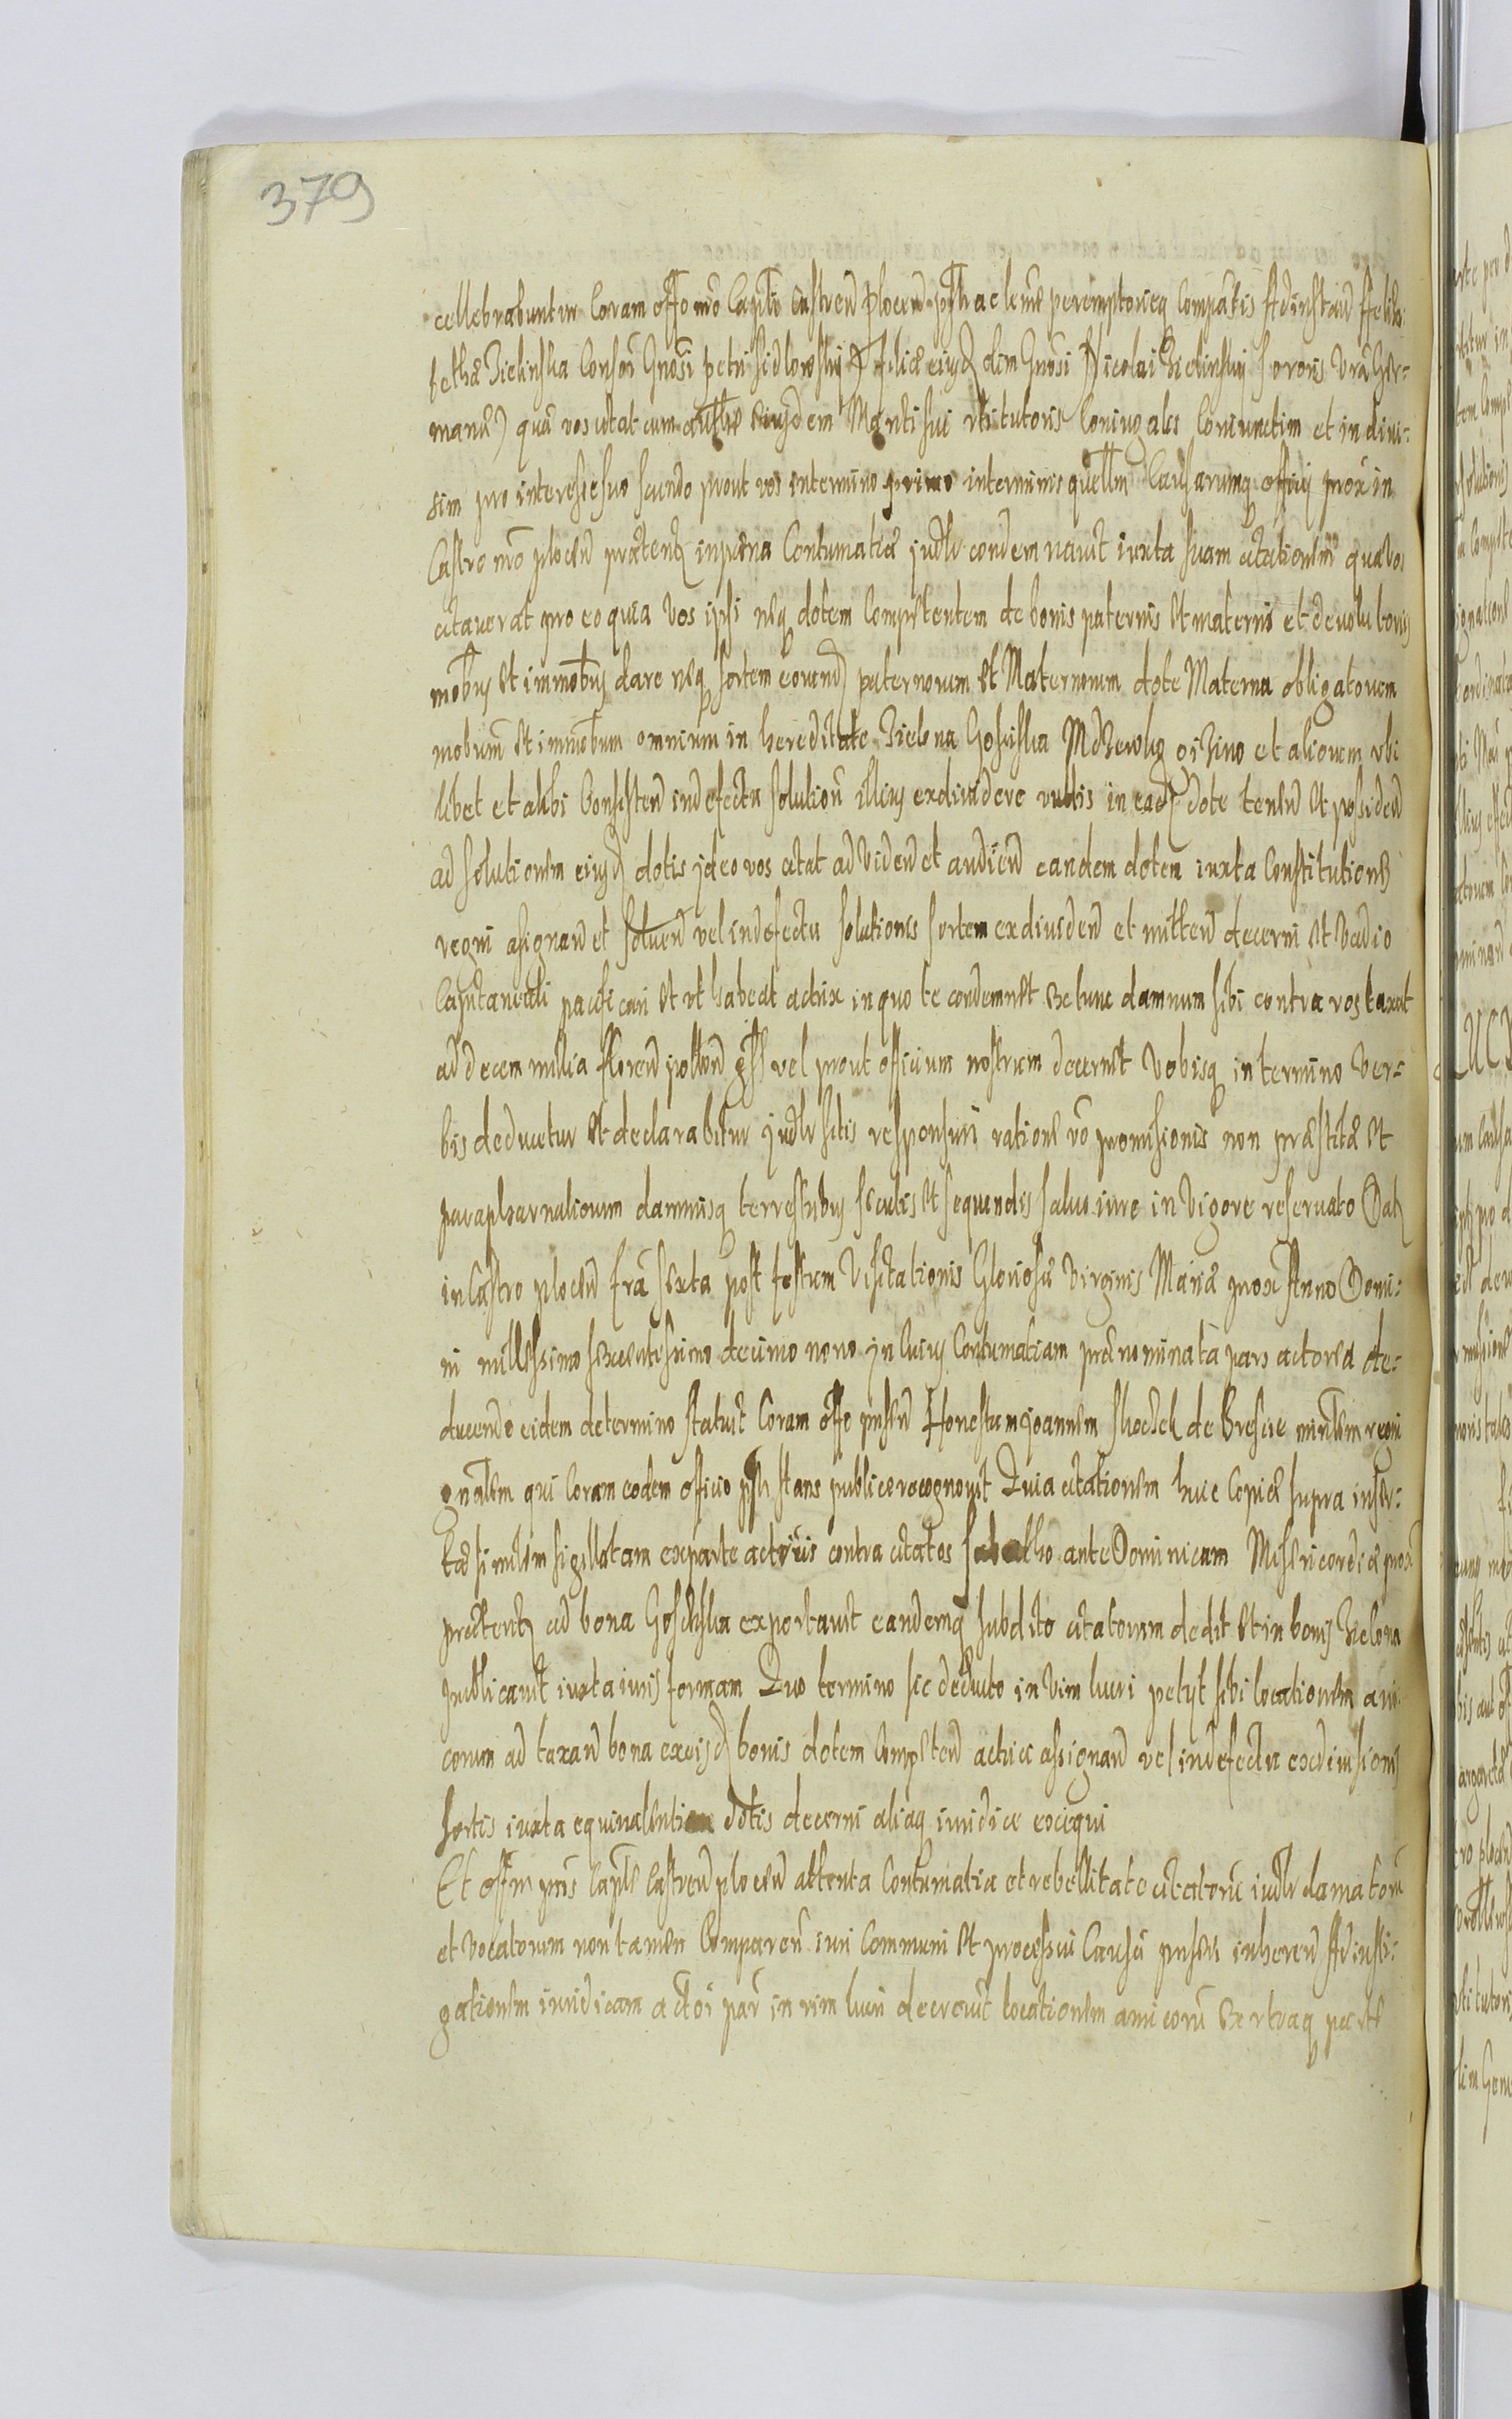 379
cellebrabuntur Coram offo nro Capitli Castren Plocen psth ac leme peremptorieq compatis Ad instan
betha Zielinska Consor Gnosi Petri Sidlowsky filia eiusd olim Gnosi Nicolai Zielinsky Sororis vra Ger-
mana) qua vos citat cum eiusdem Mariti sui vti tutoris Coniugales Coniunctim et in diui-
sim pro interesse suo scundo prout vos in termino primo in terminis quellm Causarumq officij prox in
Castro nro plocen preteritis in pena Contumatiæ judlr condemnauit iuxta suam citationem qua vos
citauerat pro eo quia vos ipsi neq dotem Competentem de bonis paternis et maternis et deuolu bonis
mobus et immobus dare neq sortem eorund paternorum et Maternorum dote Materna obligatorum
mobum et immobum omnium in hereditate Zielona Gosciska oizino et aliorum vbi
libet et alibi Consisten in defectu solution illius exdiuidere vultis in ead dote tenen et possiden
ad solutionem eiusd dotis jdeo vos citat ad viden et audien eandem dotem iuxta Constitutiones
regni asignan et soluen vel in defectu solutionis sortem exdiuiden et mitten decerni et Vadio
Capitaneali pacificari et vt habeat actrix in quo te condemnet Ex tunc damnum sibi contra vos taxat
ad decem millia floren pollon vel prout officium nostrum decernet Vobisq in termino ver-
bis deducetur et declarabitur judlr sitis responsuri ratione vo promissionis non præstitæ et
paraphernaliorum damnisq terrestribus secutis et sequendis saluo iure in vigore reseruato Dat
in Castro plocen fra sexta post festum Visitationis Gloriosæ Virginis Mariæ prox Anno Domi-
ni millessimo sexcentesimo decimo nono jn cuius Contumatiam prænominata pars actorea de-
ducendo eidem de termino statuit Coram offo pnsen Honestum joannem de Brescie mintlem regni
gnalem qui Coram eodem officio psth stans publice recognouit Quia citationem huic Copiæ supra inser-
tæ similem sigillatam ex parte actricis contra citatos Sabatho ante Dominicam Misericordiæ prox
preterit ad bona Gosciska exportauit eandemq subdito citatorum dedit et in bonis Zielona
publicauit iuxta iuris formam Quo termino sic deducto in vim lucri petijt sibi locationem ami-
corum ad taxan bona ex eisd bonis dotem Competen actrici assignan vel in defectu exdiuisionis
sortis iuxta equiualentiam dotis decerni aliaq iuridice exequi
Et offm pns Caple Castren plocen attenta Contumatia et rebellitate citatoru iudlr damatoru
et vocatorum non tamen Comparen iuri Communi et processui Causæ pnsen inheren Ad insti-
gationem iuridicam actoi par in vim lucri decreuit locationem amicoru Ex vtraq parte